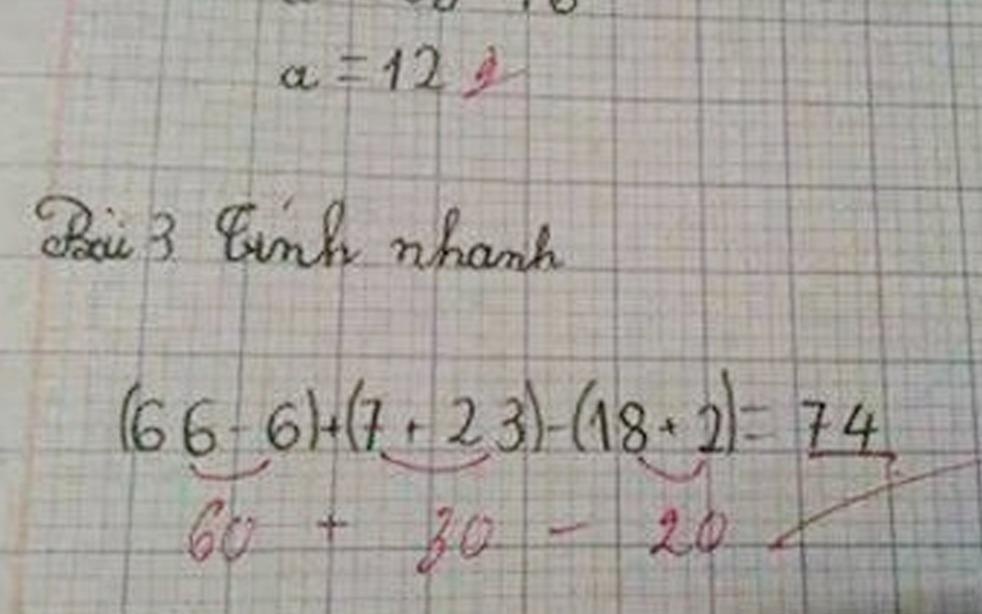 a = 12
Bài 3 Tính nhanh
(66 - 6) + (7 + 23) - (18 + 2) = 74
60 + 30 - 20